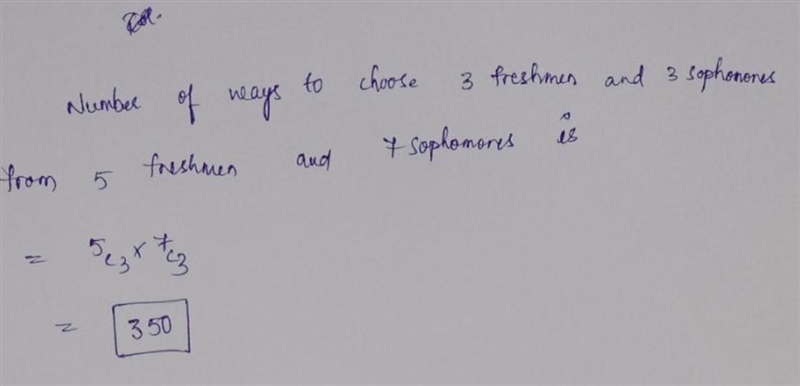 Number of ways to choose 3 freshmen and 3 sophomores
from 5 freshmen and 7 sophomores is
= ⁵C₃ × ⁷C₃
= 350